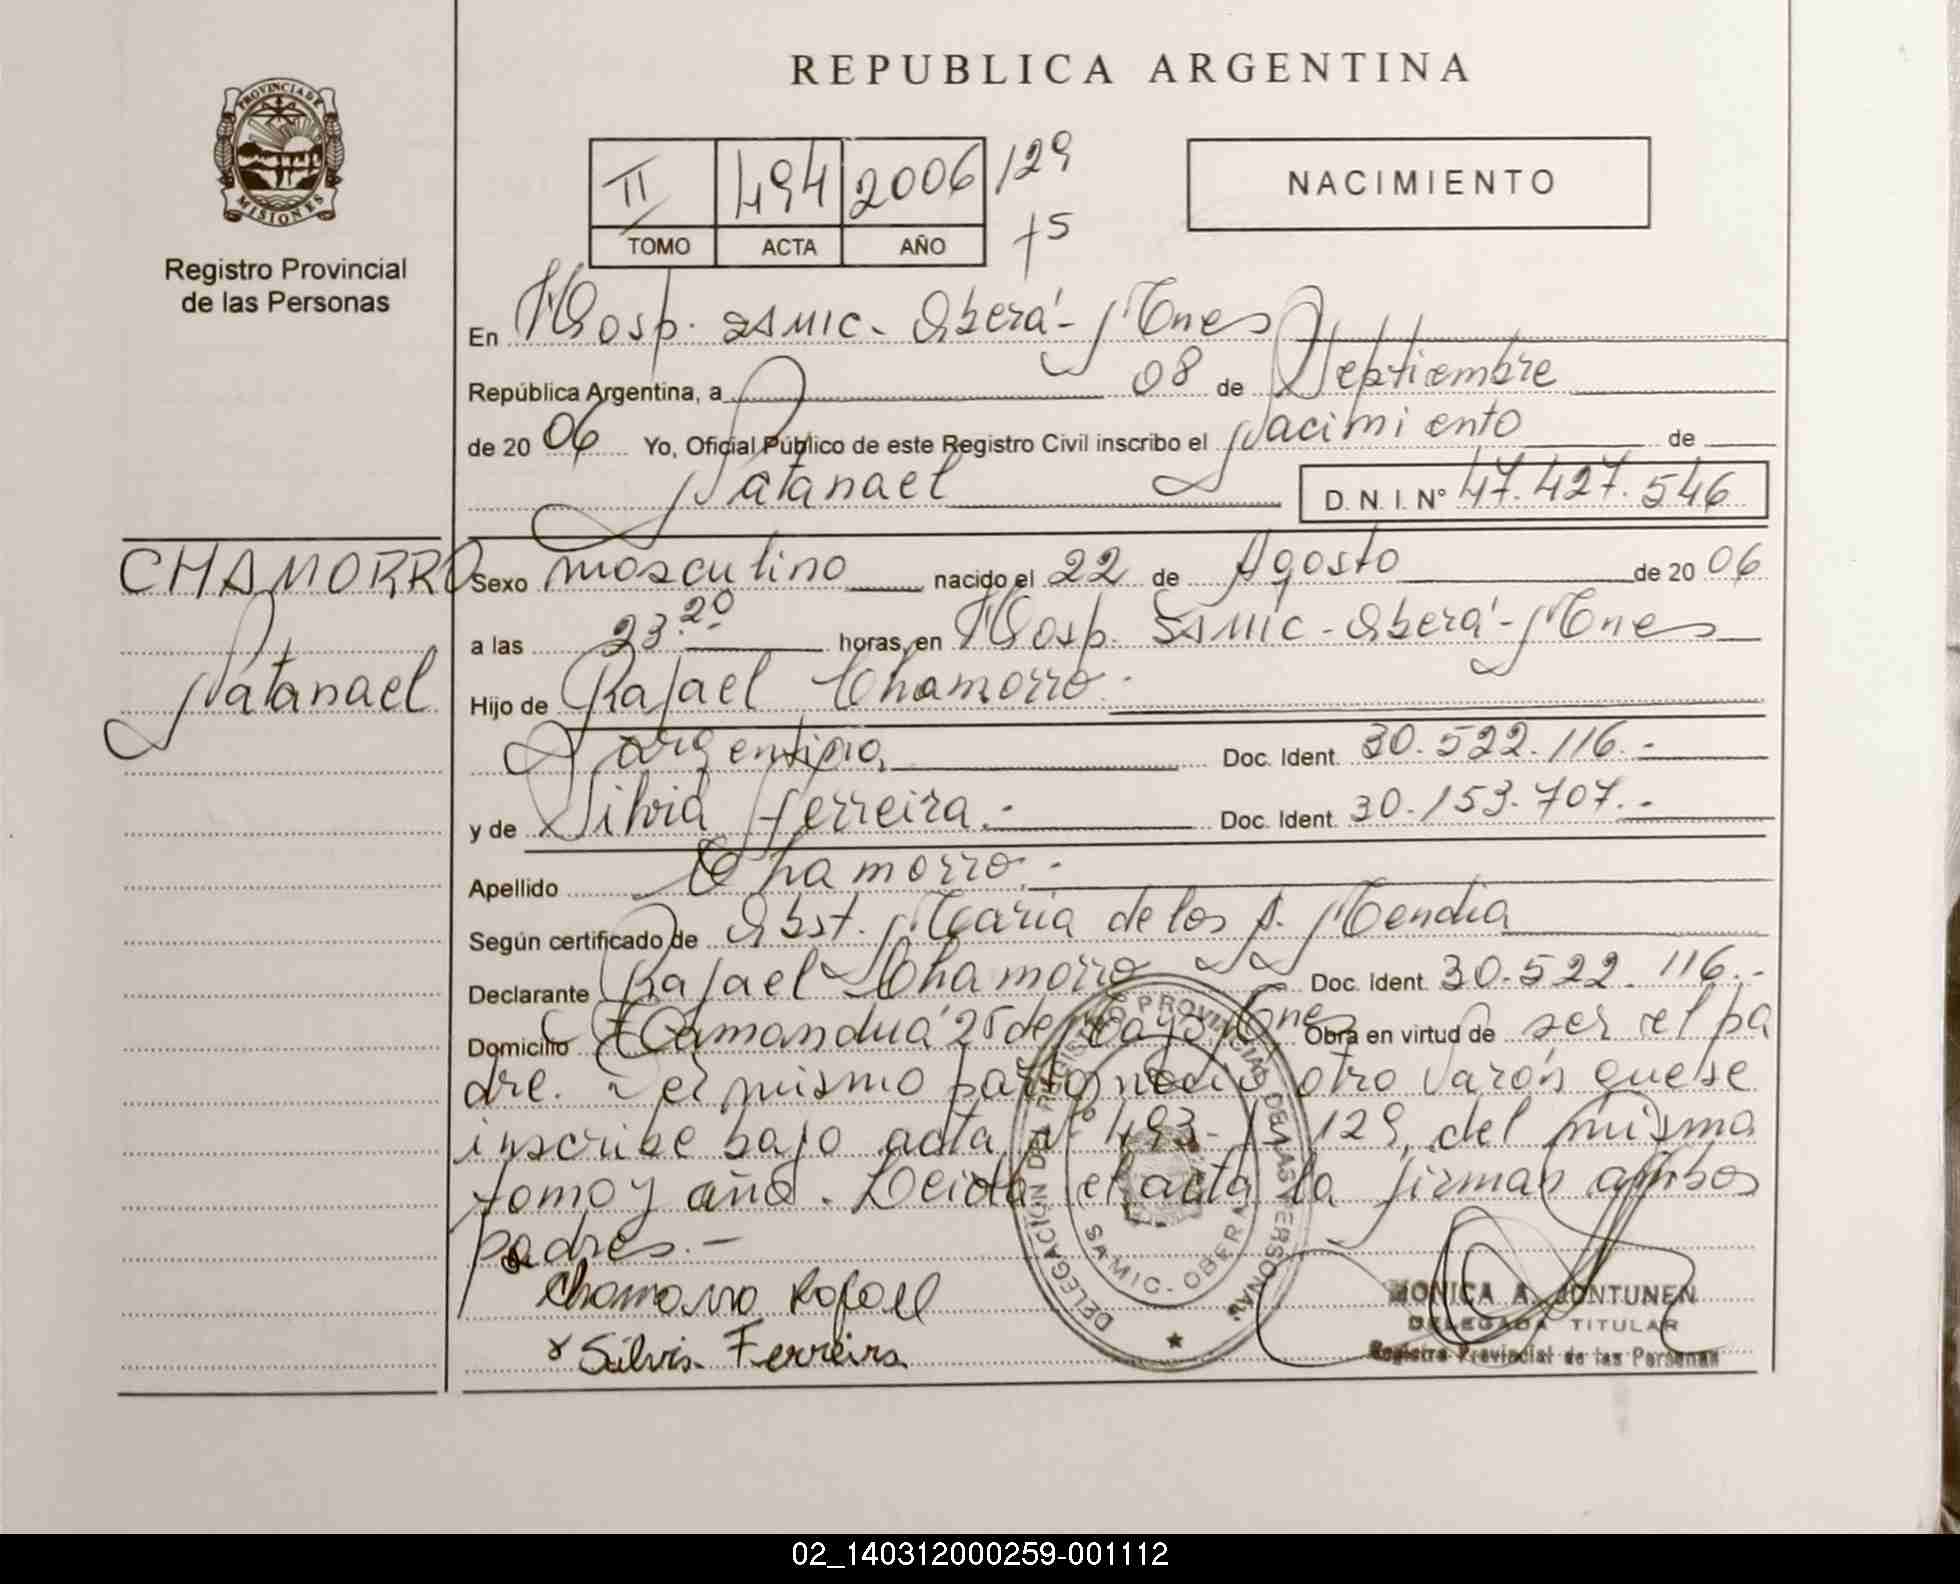 PROVINCIA DE
MISIONES
Registro Provincial
de las Personas
REPUBLICA ARGENTINA
II 494 2006 /129
TOMO ACTA AÑO
NACIMIENTO
En Hosp. SAMIC - Oberá - Mnes
República Argentina, a 08 de Septiembre
de 2006 Yo, Oficial Público de este Registro Civil inscribo el Nacimiento de
Natanael D. N. I. Nº 47.427.546
CHAMORRO
Natanael
Sexo masculino nacido el 22 de Agosto de 2006
a las 23.20 horas, en Hosp. SAMIC - Oberá - Mnes
Hijo de Rafael Chamorro.-
argentino, Doc. Ident. 30.522.116.-
y de Silvia Ferreira.- Doc. Ident. 30.153.707.-
Apellido Chamorro.-
Según certificado de Obst. María de los A. Mendia
Declarante Rafael Chamorro Doc. Ident. 30.522.116.-
Domicilio Camandua 25 de Mayo Mnes Obra en virtud de ser el pa
dre. Del mismo parto nació otro varón que se
inscribe bajo acta Nº 493 - 129, del mismo
tomo y año. Leida el acta la firman ambos
padres.-
Chamorro Rafael
Silvia Ferreira
DELEGACIÓN DEL REGISTRO PROVINCIAL DE LAS PERSONAS
SAMIC - OBERA
MONICA A. JONTUNEN
DELEGADA TITULAR
Registro Provincial de las Personas
02_140312000259-001112